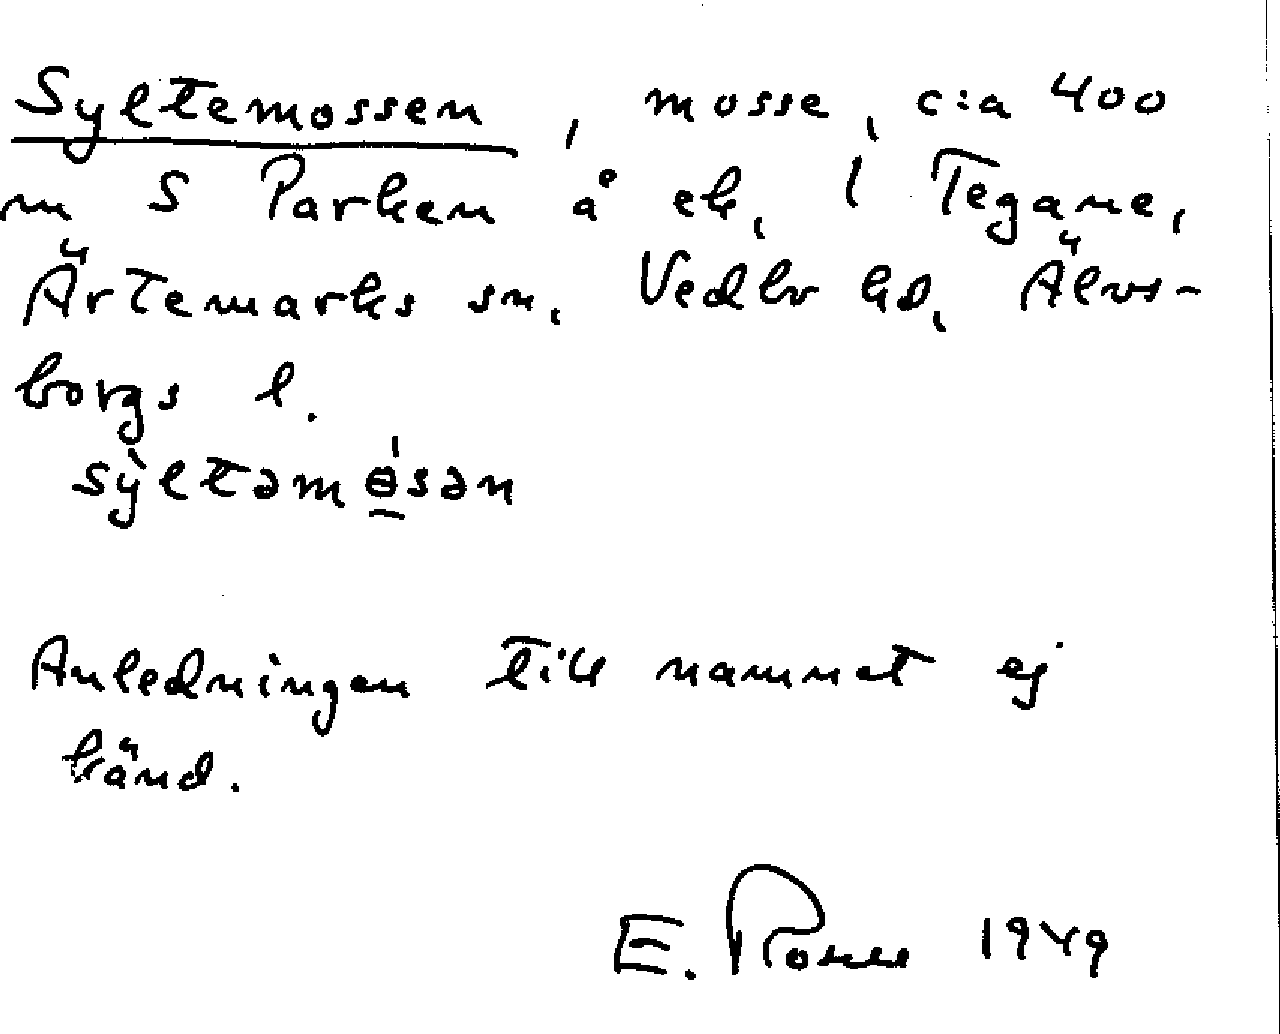 Syltemossen, mosse, c:a 400
m S Parken å ek, i Tegane,
Ärtemarks sn, Vedbo hd, Älvs-
borgs l.
sỳltəmɵ̲́sən
Anledningen till namnet ej
känd.
E. 1949